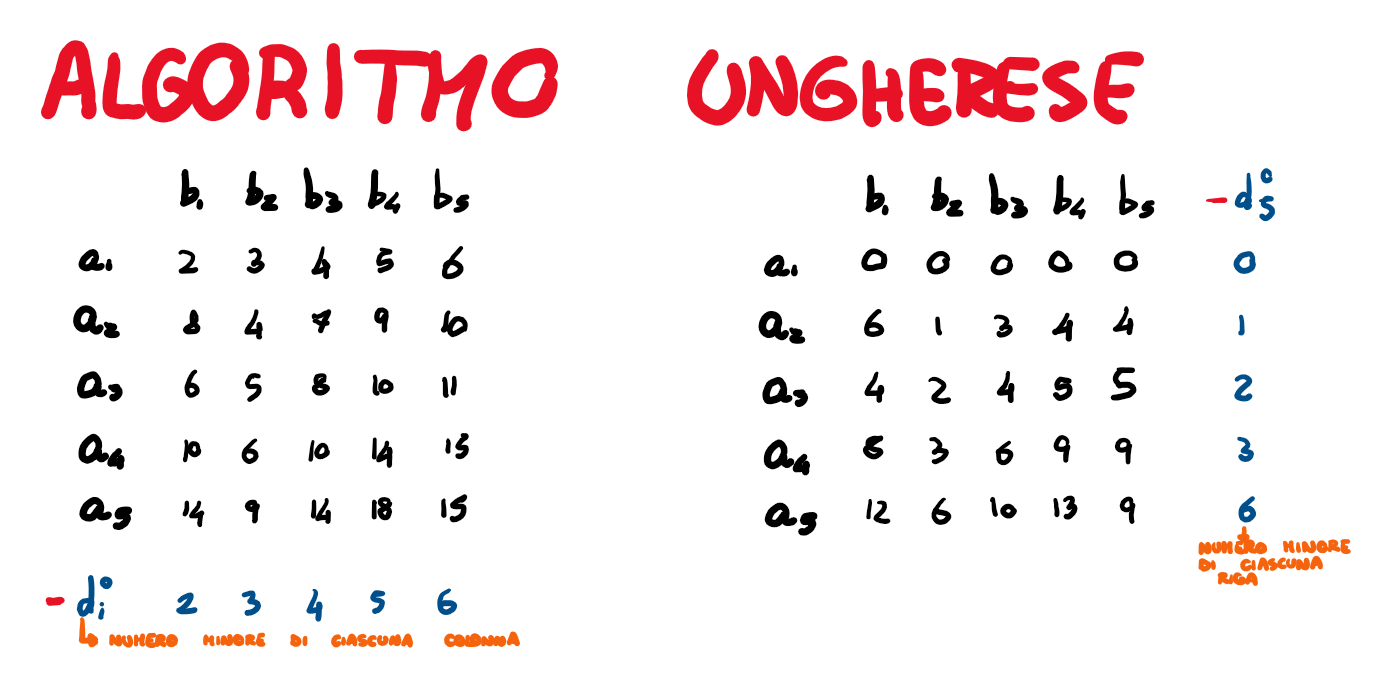 ALGORITMO UNGHERESE
b1 b2 b3 b4 b5
a1 2 3 4 5 6
a2 8 4 7 9 10
a3 6 5 8 10 11
a4 10 6 10 14 15
a5 14 9 14 18 15
- di° 2 3 4 5 6
NUMERO MINORE DI CIASCUNA COLONNA
b1 b2 b3 b4 b5 - d°s
a1 0 0 0 0 0 0
a2 6 1 3 4 4 1
a3 4 2 4 5 5 2
a4 8 3 6 9 9 3
a5 12 6 10 13 9 6
NUMERO MINORE
DI CIASCUNA
RIGA